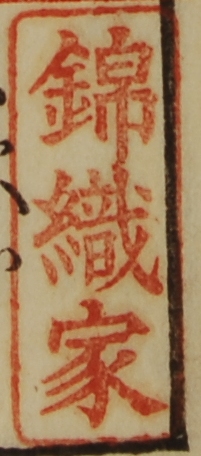 錦織家